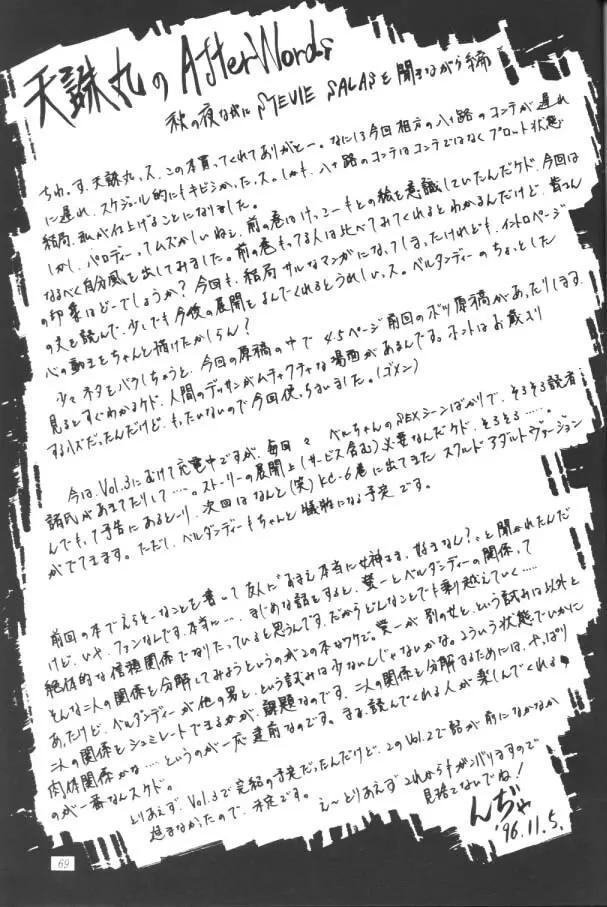 天誅丸のAfterWords
秋の夜ながに STEVIE SALASを聞きながら 締
ちわ。す。天誅丸ッス。この本買ってくれてありがとー。なにに今回相方の八十路のコンテが遅れ
に遅れ、スケジュール的にもキビシかったッス。しかも、八十路のコンテはコンテではなくプロット状態
結局、私が仕上げることになりました。
しかし、パロディーってムズかしいねぇ、前の巻はけっこーもとの絵を意識していたんだケド、今回は
なるべく自分風を出してみました。前の巻もってる人は比べてみてくれるとわかるんだけど、皆さん
の印象はどーでしょうか？今回も、結局サルなマンガになってしまったけれども、イントロページ
の文を読んで、少しでも今後の展開をよんでくれるとうれしいッス。ベルダンディーのちょっとした
心の動きをちゃんと描けたかしらん？
少々ネタをバラしちゃうと、今回の原稿の中で 4.5ページ前回のボツ原稿があったりします。
見るとすぐわかるケド、人間のデッサンがムチャクチャな場面があるんです。ホントはお蔵入り
するハズだったんだけど、もったいないので今回使っちまいました。(ゴメン)
今は、Vol.3にむけて充電中ですが、毎回々 ベルちゃんのSEXシーンばかりで、そろそろ読者
諸氏があきてたりして…。ストーリーの展開上(サービス含む)必要なんだケド、そろそろ……。
んでもって予告にあるとーり、次回はなんと(笑)KC-6巻に出てきた スクルド アダルトヴァージョン
がでてきます。ただし、ベルダンディーもちゃんと犠牲になる予定です。
前回の本でえらそーなことを書いて友人に"おまえ本当に女神さま、好きなん？"と聞かれたんだ
けど、いや、ファンなんです。本当に…。まじめな話をすると、螢一とベルダンディーの関係って
絶体的な信頼関係でなりたっていると思うんです。だからどんなことでも乗り越えていく……
そんな二人の関係を分解してみようというのがこの本なワケで。螢一が別の女と、という試みは以外と
あったけど、ベルダンディーが他の男と、という試みは少ないんじゃないかな。こういう状態でいかに
二人の関係をシュミレートできるかが、課題なのです。二人の関係を分解するためには、やっぱり
肉体関係かな…というのが一応建前なのです。まぁ、読んでくれる人が楽しんでくれる
のが一番なんスケド。
とりあえず、Vol.3で完結の予定だったんだけど、このVol.2で話が前になかなか
進まなかったので、未定です。
え〜とりあえず これからもガンバリますので
見捨てないでね！
んぢゃ
'96.11.5.
69